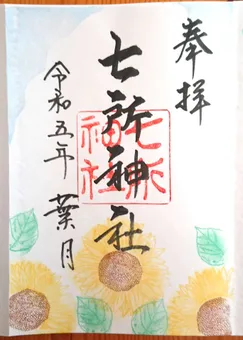 奉拝
七所神社
七所福社
令和五年 葉月